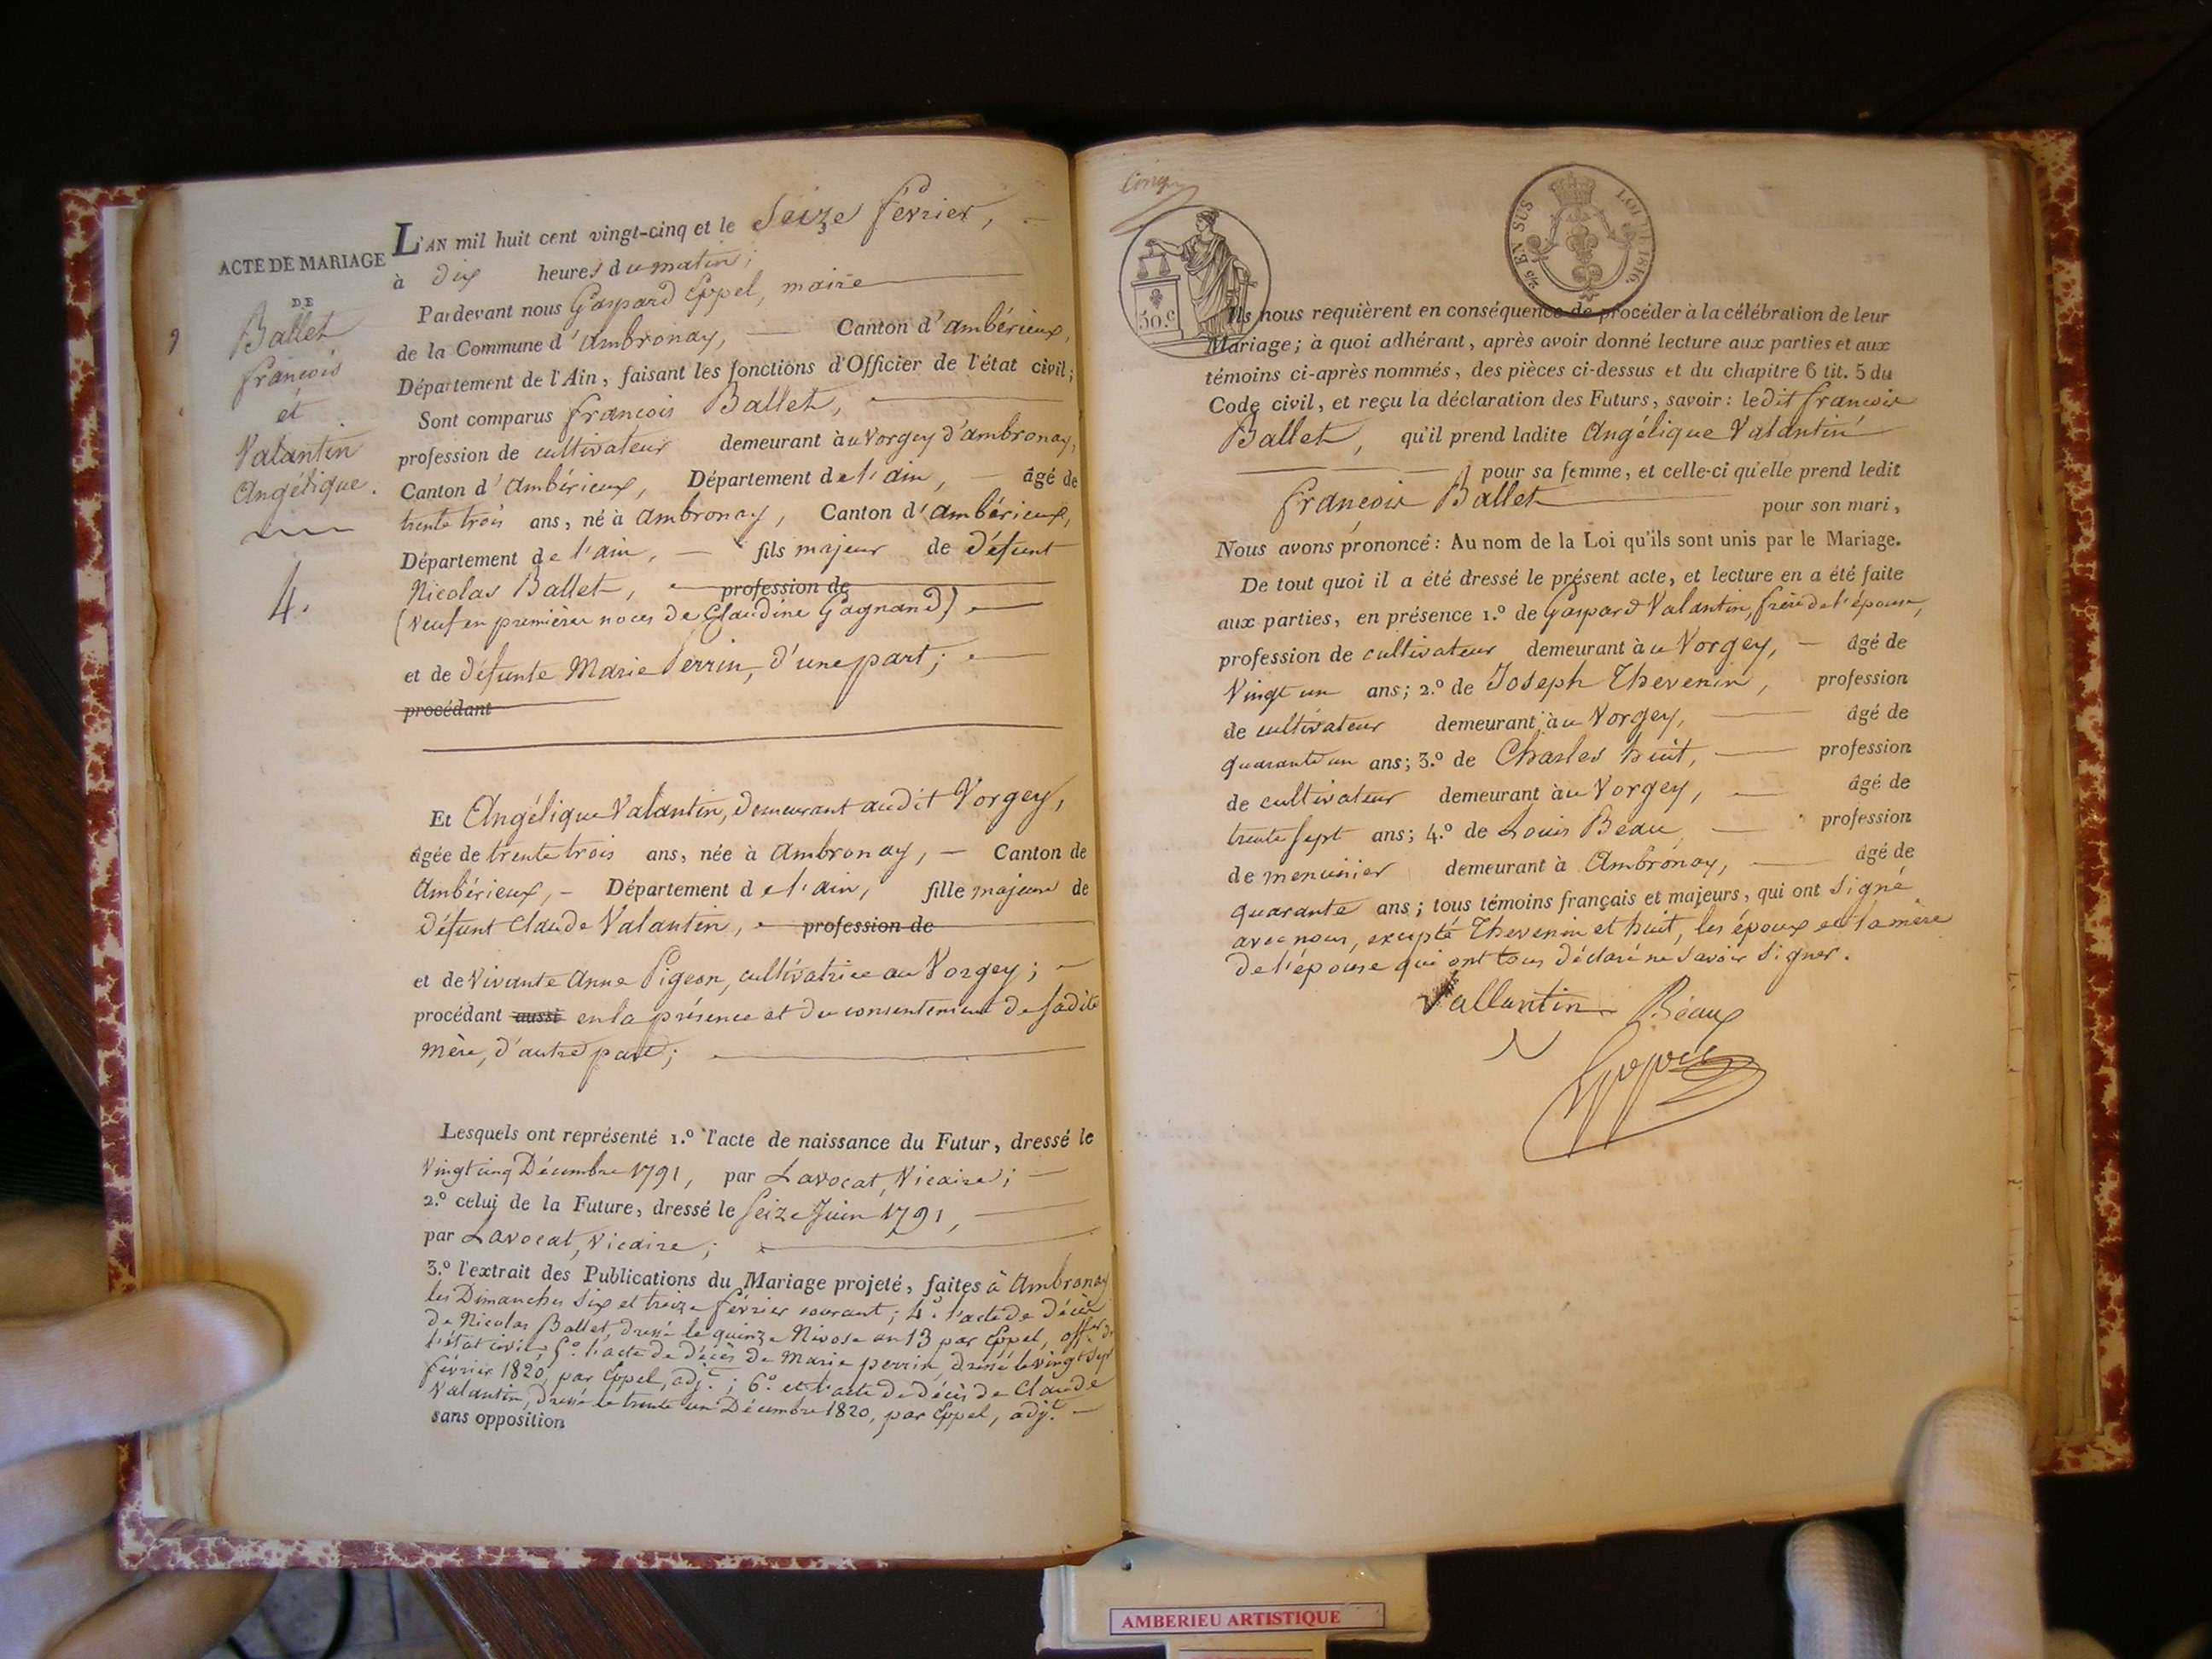 ACTE DE MARIAGE
DE
Ballet
françois
et
Valantin
Angélique.
4.
L'AN mil huit cent vingt-cinq et le Seize février,
à dix heures du matin;
Pardevant nous Gaspard Eppel, maire
de la Commune d'Ambronay, Canton d'ambérieux,
Département de l'Ain, faisant les fonctions d'Officier de l'état civil;
Sont comparus françois Ballet,
profession de cultivateur demeurant au Vorgey d'ambronay,
Canton d'Ambérieux, Département de l'ain, âgé de
trente trois ans, né à Ambronay, Canton d'Ambérieux,
Département de l'ain, fils majeur de défunt
Nicolas Ballet, profession de
(veuf en premières noces de Claudine Gagnand)
et de défunte Marie Perrin, d'une part;
procédant
Et Angélique Valantin, demeurant audit Vorgey,
âgée de trente trois ans, née à Ambronay, Canton de
Ambérieux, Département de l'ain, fille majeure de
défunt Claude Valantin, profession de
et de Vivante Anne Pigeon, cultivatrice au Vorgey;
procédant aussi en la présence et du consentement de sadite
mère, d'autre part;
Lesquels ont représenté 1.º l'acte de naissance du Futur, dressé le
Vingt cinq Décembre 1791, par Lavocat, Vicaire;
2.º celui de la Future, dressé le Seize Juin 1791,
par Lavocat, Vicaire;
3.º l'extrait des Publications du Mariage projeté, faites à Ambronay
les Dimanches six et treize février courant; 4.º l'acte de décès
de Nicolas Ballet, dressé le quinze Nivose an 13 par Eppel, off.er de
l'état civil; 5.º l'acte de décès de Marie perrin, dressé le vingt sept
février 1820, par Eppel, adj.t; 6.º et l'acte de décès de Claude
Valantin, dressé le trente un Décembre 1820, par Eppel, adj.t
sans opposition
50.c
2/5 EN SUS
LOI DE 1816.
Ils nous requièrent en conséquence de procéder à la célébration de leur
Mariage; à quoi adhérant, après avoir donné lecture aux parties et aux
témoins ci-après nommés, des pièces ci-dessus et du chapitre 6 tit. 5 du
Code civil, et reçu la déclaration des Futurs, savoir: ledit françois
Ballet, qu'il prend ladite Angélique Valantin
pour sa femme, et celle-ci qu'elle prend ledit
françois Ballet pour son mari,
Nous avons prononcé: Au nom de la Loi qu'ils sont unis par le Mariage.
De tout quoi il a été dressé le présent acte, et lecture en a été faite
aux parties, en présence 1.º de Gaspard Valantin, frère de l'épouse,
profession de cultivateur demeurant au Vorgey, âgé de
Vingt un ans; 2.º de Joseph Thevenin, profession
de cultivateur demeurant au Vorgey, âgé de
quarante un ans; 3.º de Charles huit, profession
de cultivateur demeurant au Vorgey, âgé de
trente sept ans; 4.º de Louis Beau, profession
de menuisier demeurant à Ambronay, âgé de
quarante ans; tous témoins français et majeurs, qui ont Signé
avec nous, excepté Thevenin et huit, les époux et la mère
de l'épouse qui ont tous déclaré ne savoir signer.
Vallantin Béaux
Eppel
AMBERIEU ARTISTIQUE